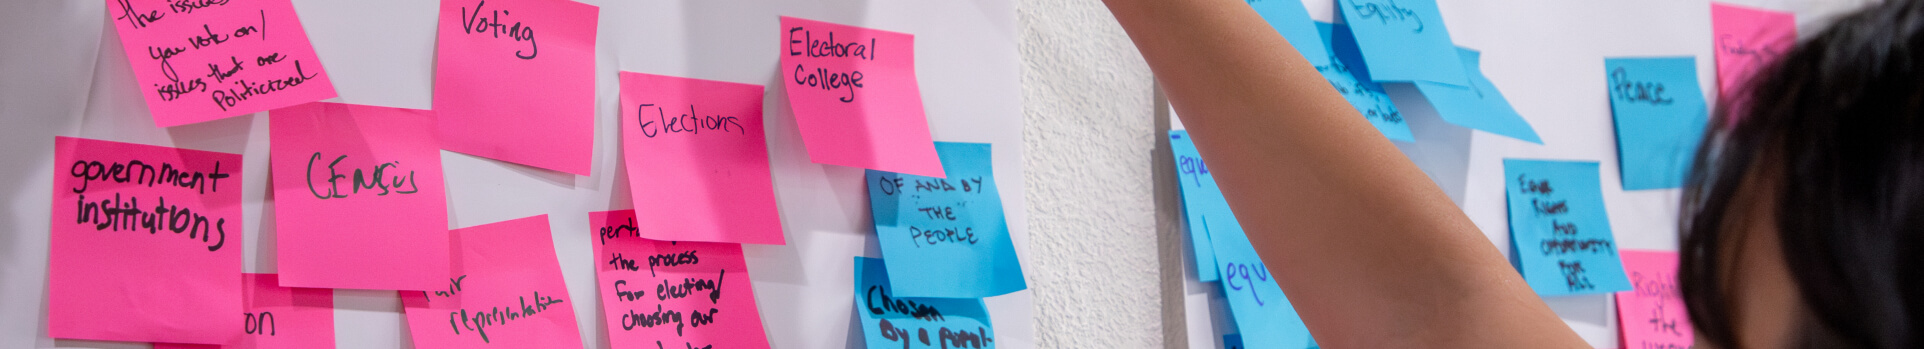 the issues
you vote on/
issues that are
Politicized
Voting
Electoral
College
Elections
government
institutions
CENSUS
OF AND BY
THE
PEOPLE
on
representation
the process
For electing/
choosing our
Chosen
By a popul-
Equity
Peace
Equal
Rights
And
Opportunity
For
ALL
equ
equ
Right
the